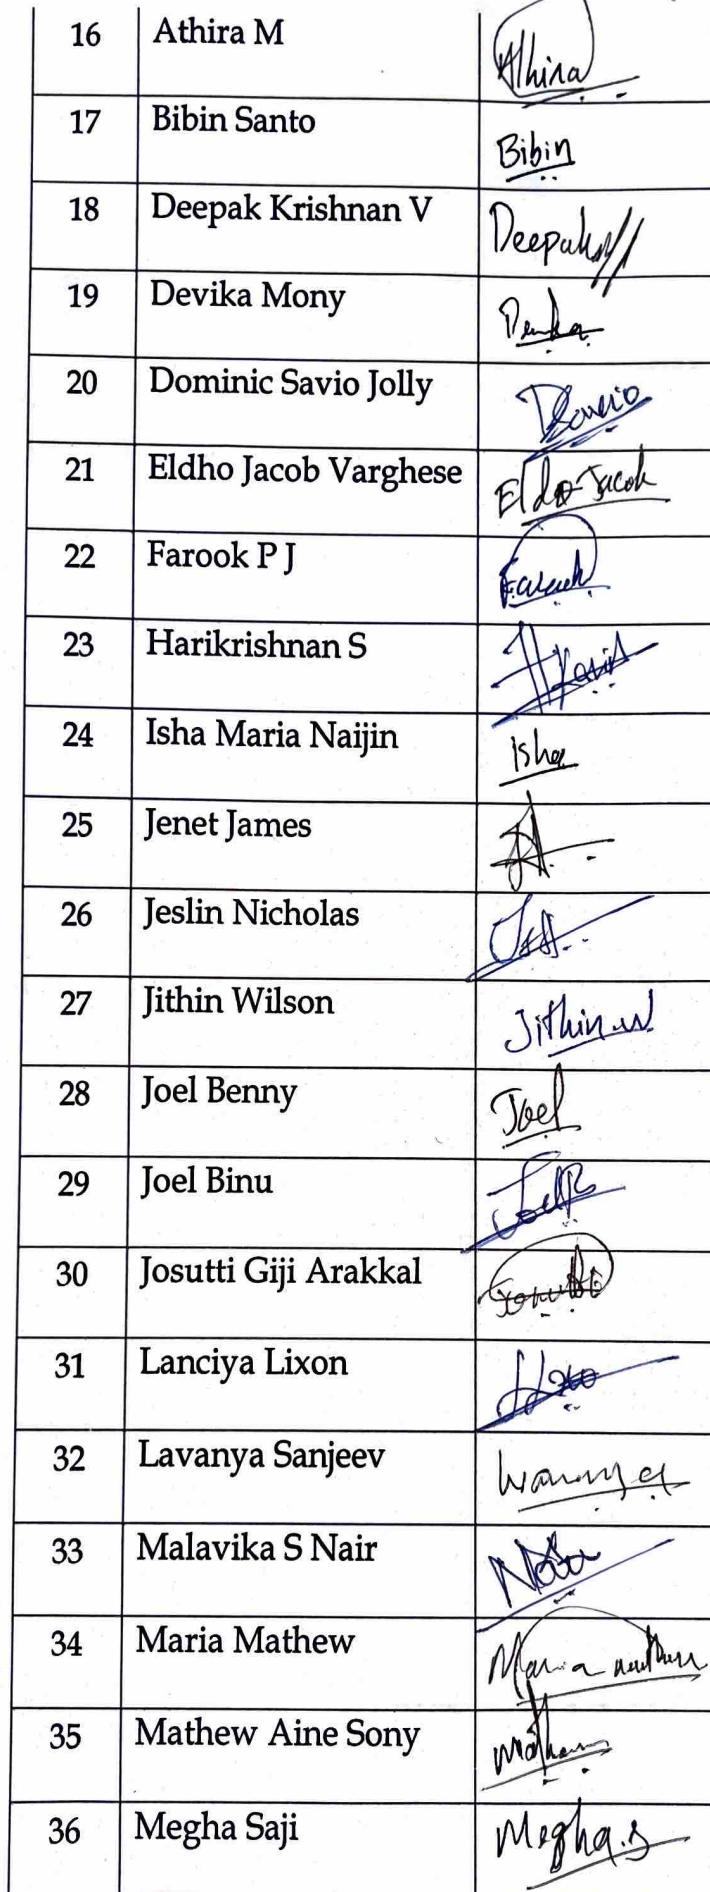 16 Athira M Athira
17 Bibin Santo Bibin
18 Deepak Krishnan V Deepak
19 Devika Mony Devika
20 Dominic Savio Jolly DSavio
21 Eldho Jacob Varghese Eldo Jacob
22 Farook P J Farook
23 Harikrishnan S
24 Isha Maria Naijin Isha
25 Jenet James
26 Jeslin Nicholas
27 Jithin Wilson Jithin.W
28 Joel Benny Joel
29 Joel Binu JoelB
30 Josutti Giji Arakkal
31 Lanciya Lixon
32 Lavanya Sanjeev
33 Malavika S Nair
34 Maria Mathew Maria Mathew
35 Mathew Aine Sony
36 Megha Saji Megha.S